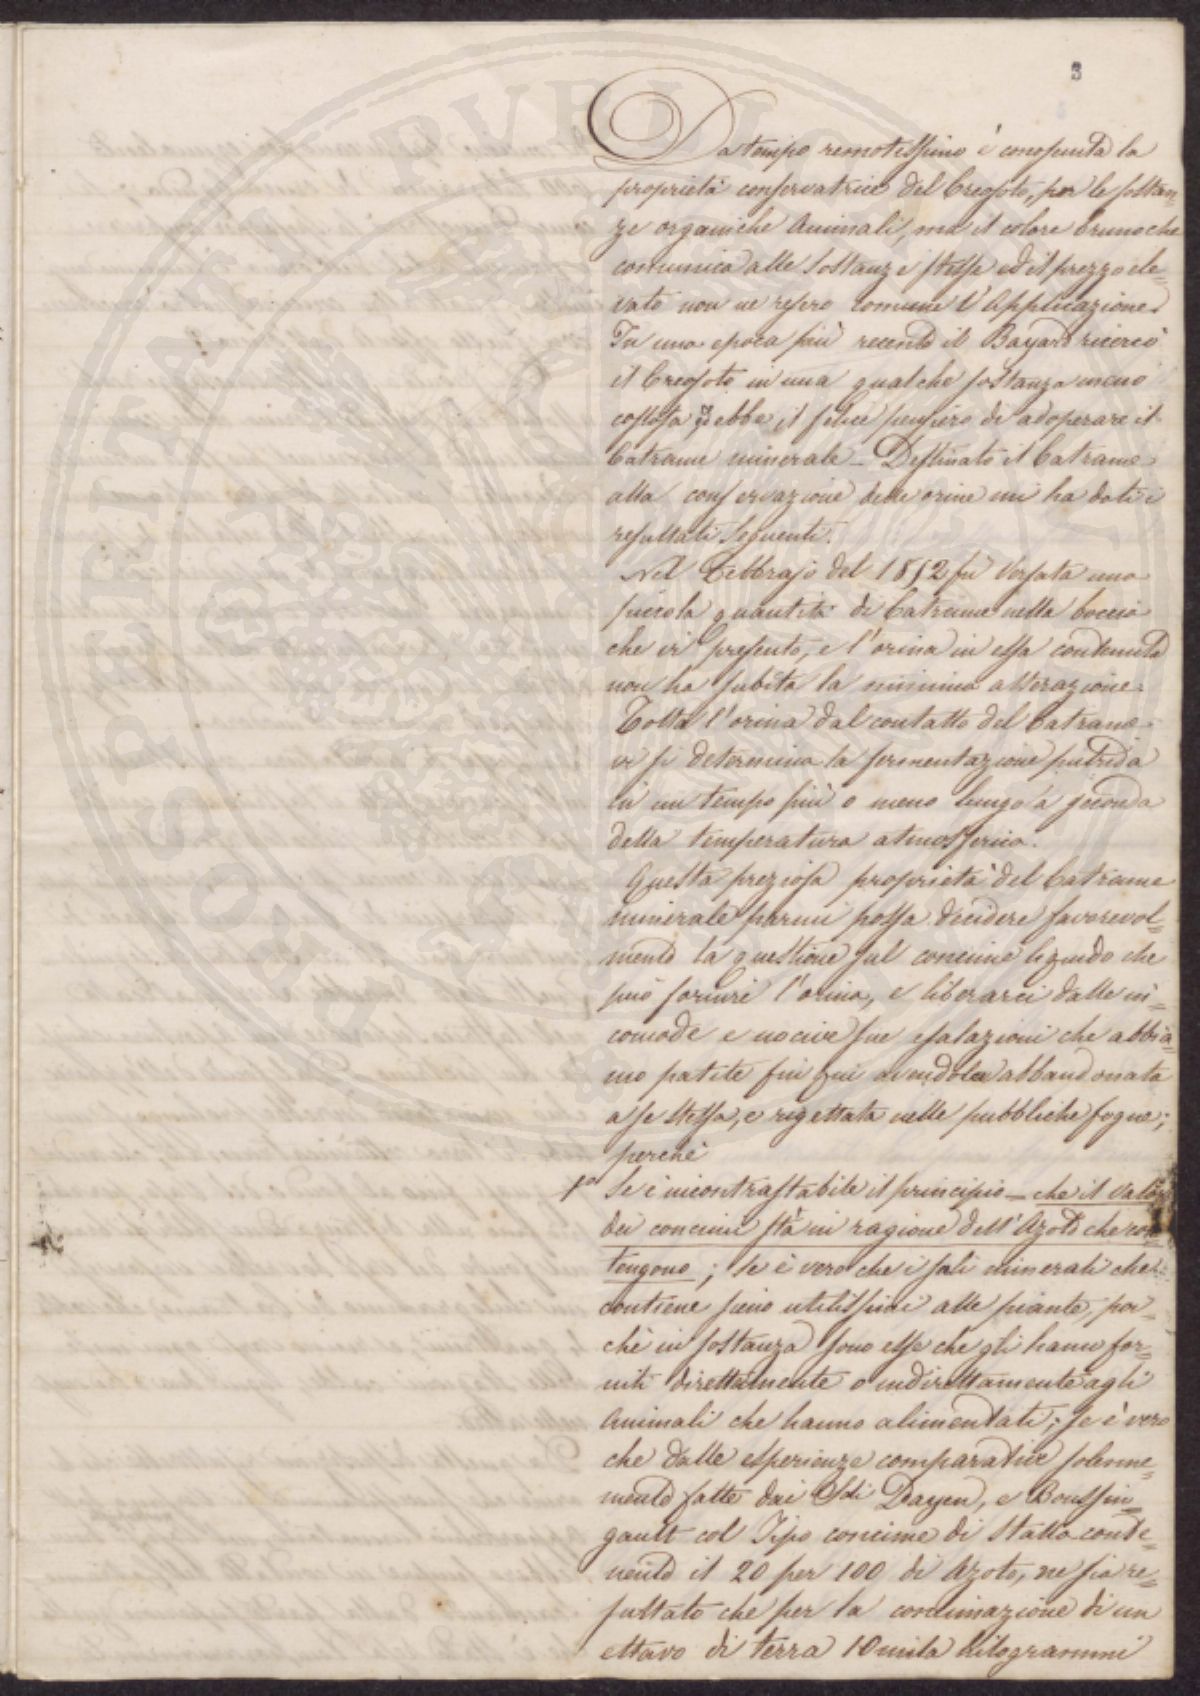 3
Da tempo remotissimo è conosciuta la
proprietà conservatrice del Creosoto, per le sostan=
ze organiche Animali, ma il colore bruno che
comunica alle Sostanze stesse ed il prezzo ele=
vato non ne resero comune l'Applicazione.
In una epoca più recente il Bayard ricercò
il Creosoto in una qualche sostanza meno
costosa ed ebbe il felice pensiero di adoperare il
Catrame minerale – Destinato il Catrame
alla conservazione delle orine mi ha dati i
resultati seguenti.
Nel Febbrajo del 1852 fu versata una
piccola quantità di Catrame nella boccia
che vi presento, e l'orina in essa contenuta
non ha subita la minima alterazione.
Tolta l'orina dal contatto del Catrame
vi si determina la fermentazione putrida
in un tempo più o meno lungo a seconda
della temperatura atmosferica.
Questa preziosa proprietà del Catrame
minerale parmi possa decidere favorevol=
mente la questione sul concime liquido che
può fornire l'orina, e liberarci dalle in=
comode e nocive sue esalazioni che abbia=
mo patite fin qui avendola abbandonata
a se stessa, e rigettata nelle pubbliche fogne;
perchè
1° Se è incontrastabile il principio – che il valore
dei concimi stà in ragione dell'Azoto che con=
tengono; se è vero che i sali minerali che
contiene sieno utilissimi alle piante, poi=
chè in sostanza sono esse che gli hanno for=
niti direttamente o indirettamente agli
Animali che hanno alimentati; se è vero
che dalle esperienze comparative solenne=
mente fatte dai Sdi Payen, e Boussin=
gault col Tipo concime di Stalla conte=
nente il 20 per 100 di Azoto, ne sia re=
sultato che per la concimazione di un
ettavo di terra 10 mila Kilogrammi